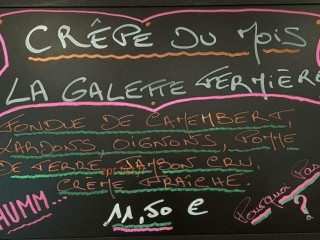 CRÊPE DU MOIS
LA GALETTE FERMIÈRE
FONDUE DE CAMEMBERT,
LARDONS, OIGNONS, POMME
DE TERRE, JAMBON CRU
CRÈME FRAÎCHE.
HUMM...
11,50 €
Pourquoi Pas
?